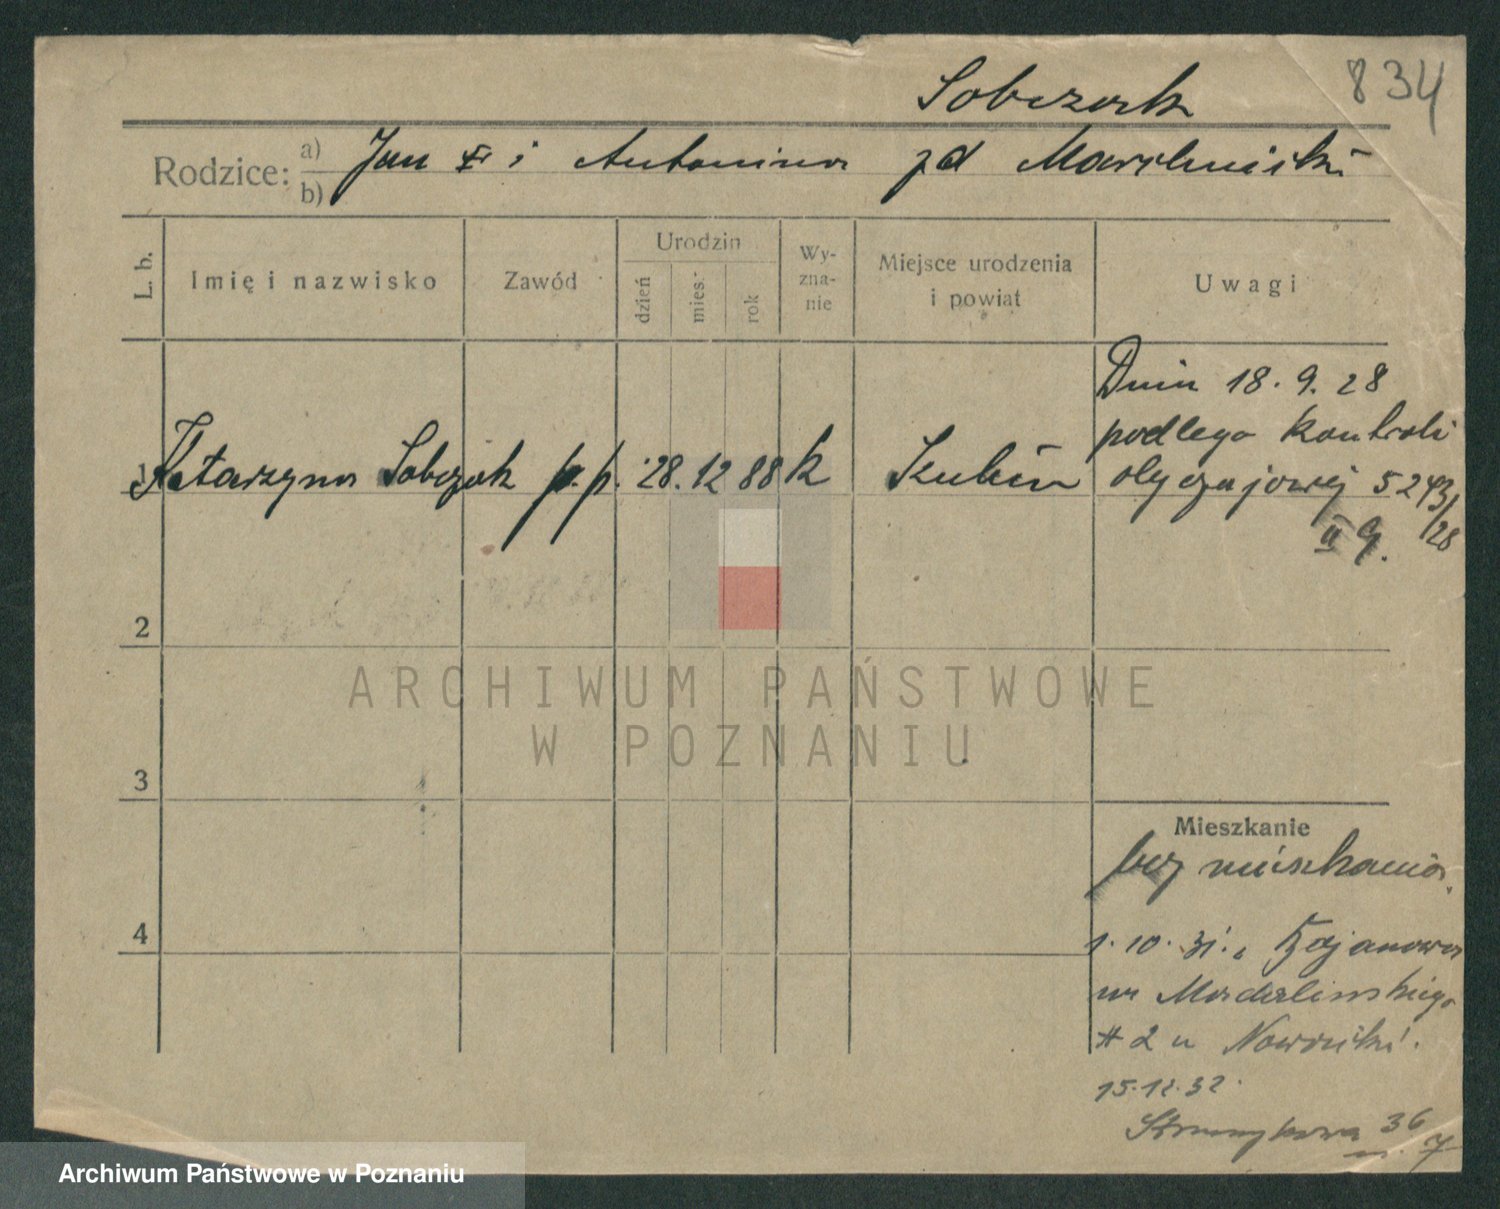 Sobczak
834
Rodzice: a) Jan i Antonina zd
b)
L. b.
Imię i nazwisko
Zawód
Urodzin
dzień
mies.
rok
Wy-
zna-
nie
Miejsce urodzenia
i powiat
Uwagi
1 Katarzyna Sobczak p. p. 28. 12 88 k
Dnia 18. 9. 28
podlega kontroli
obyczajowej 5243/28
II
2
3
4
ARCHIWUM PAŃSTWOWE
W POZNANIU
Mieszkanie
bez mieszkania.
1. 10. 31.
# 2 u
15.12.32.
36
m. 7
Archiwum Państwowe w Poznaniu